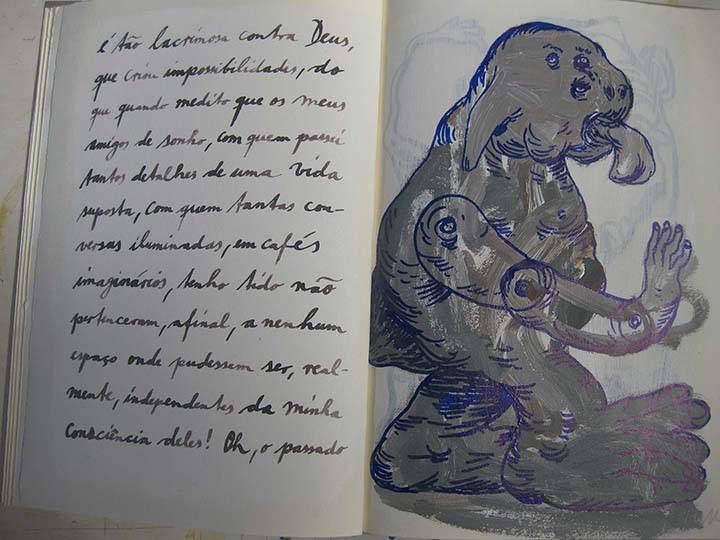 é tão lacrimosa contra Deus,
que criou impossibilidades, do
que quando medito que os meus
amigos de sonho, com quem passei
tantos detalhes de uma vida
suposta, com quem tantas con-
versas iluminadas, em cafés
imaginários, tenho tido não
pertenceram, afinal, a nenhum
espaço onde pudessem ser, real-
mente, independentes da minha
consciência deles! Oh, o passado